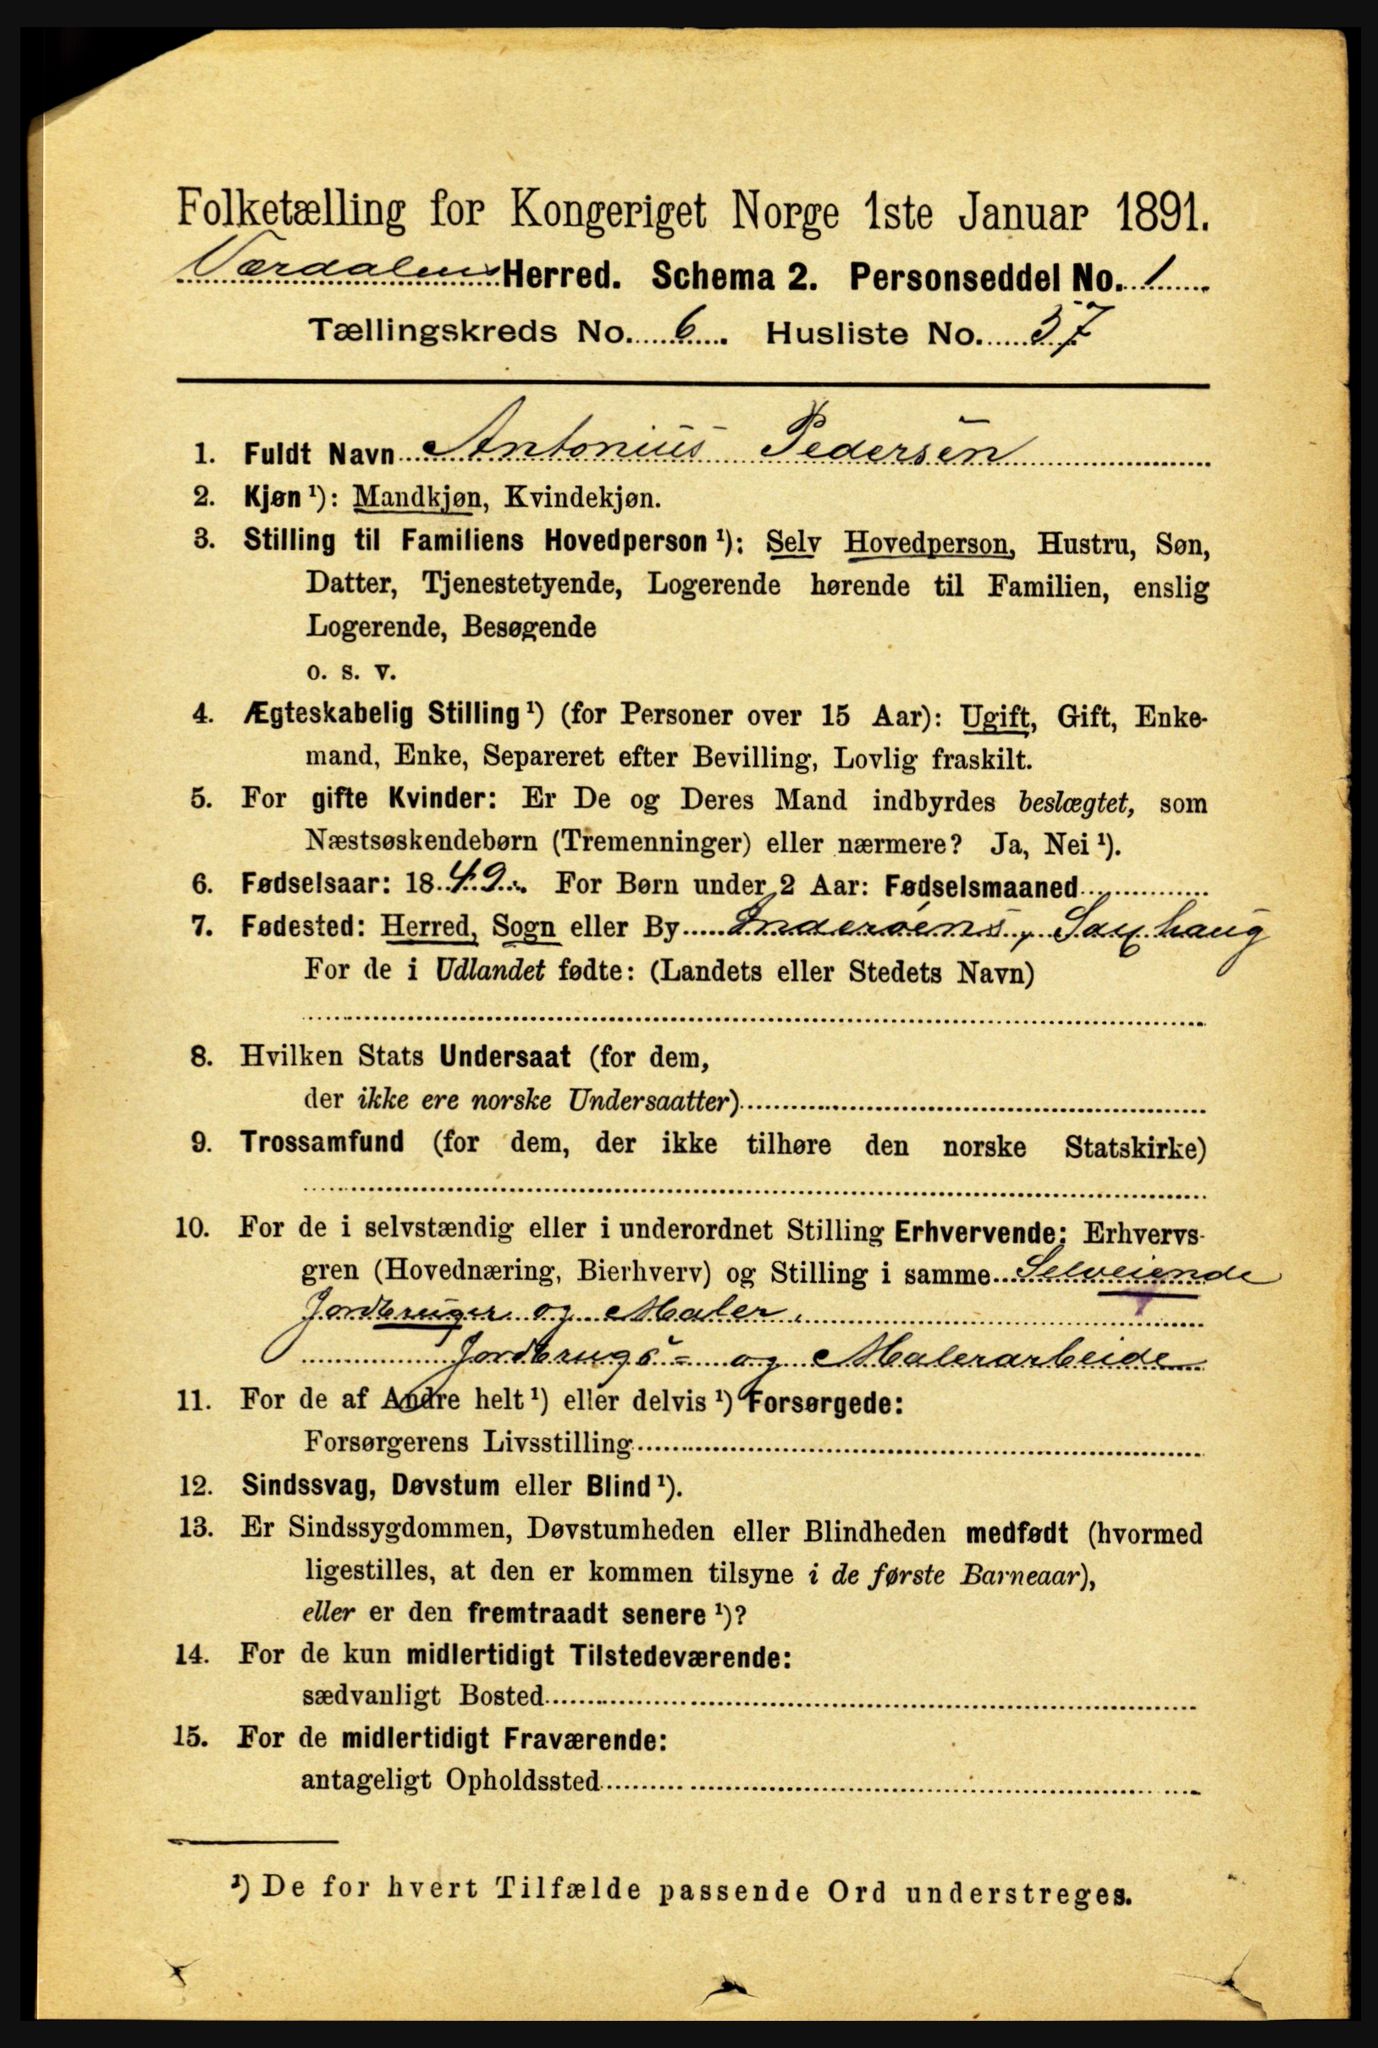 Folketælling for Kongeriget Norge 1ste Januar 1891.
Værdalens Herred. Schema 2. Personseddel No. 1
Tællingskreds No. 6. Husliste No. 37
1. Fuldt Navn Antonius Pedersen
2. Kjøn¹): Mandkjøn, Kvindekjøn.
3. Stilling til Familiens Hovedperson¹): Selv Hovedperson, Hustru, Søn,
Datter, Tjenestetyende, Logerende hørende til Familien, enslig
Logerende, Besøgende
o. s. v.
4. Ægteskabelig Stilling¹) (for Personer over 15 Aar): Ugift, Gift, Enke-
mand, Enke, Separeret efter Bevilling, Lovlig fraskilt.
5. For gifte Kvinder: Er De og Deres Mand indbyrdes beslægtet, som
Næstsøskendebørn (Tremenninger) eller nærmere? Ja, Nei¹).
6. Fødselsaar: 1849. For Børn under 2 Aar: Fødselsmaaned
7. Fødested: Herred, Sogn eller By Inderøens, Saxhaug
For de i Udlandet fødte: (Landets eller Stedets Navn)
8. Hvilken Stats Undersaat (for dem,
der ikke ere norske Undersaatter)
9. Trossamfund (for dem, der ikke tilhøre den norske Statskirke)
10. For de i selvstændig eller i underordnet Stilling Erhvervende: Erhvervs-
gren (Hovednæring, Bierhverv) og Stilling i samme Selveiende
Jordbruger og Maler,
Jordbrugs- og Malerarbeide
11. For de af Andre helt¹) eller delvis¹) Forsørgede:
Forsørgerens Livsstilling
12. Sindssvag, Døvstum eller Blind¹).
13. Er Sindssygdommen, Døvstumheden eller Blindheden medfødt (hvormed
ligestilles, at den er kommen tilsyne i de første Barneaar),
eller er den fremtraadt senere¹)?
14. For de kun midlertidigt Tilstedeværende:
sædvanligt Bosted
15. For de midlertidigt Fraværende:
antageligt Opholdssted
¹) De for hvert Tilfælde passende Ord understreges.